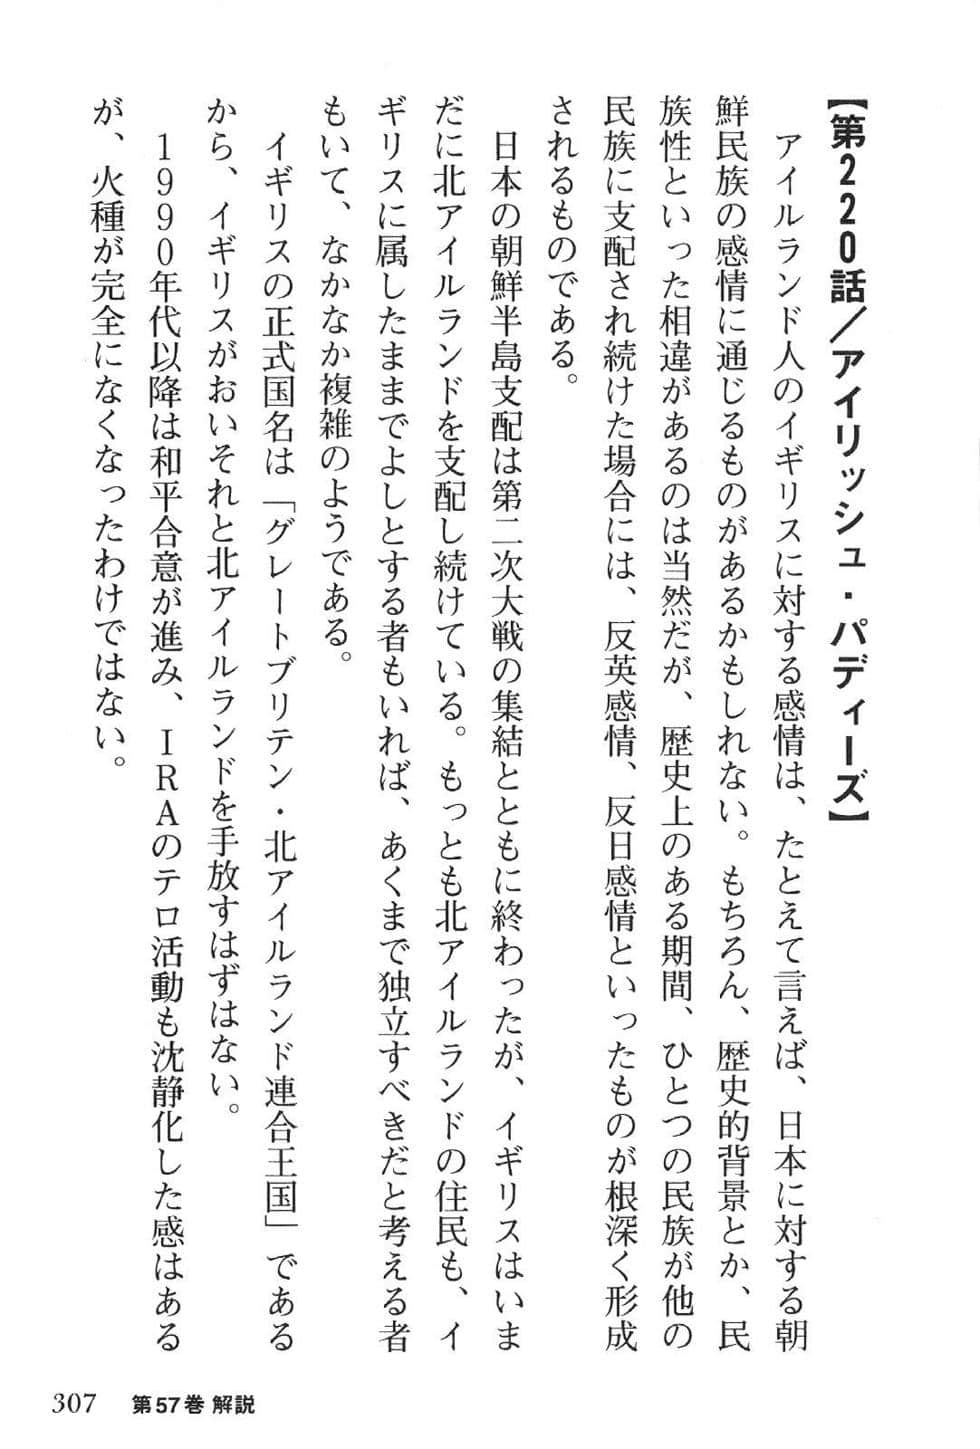 【第220話／アイリッシュ・パディーズ】
アイルランド人のイギリスに対する感情は、たとえて言えば、日本に対する朝
鮮民族の感情に通じるものがあるかもしれない。もちろん、歴史的背景とか、民
族性といった相違があるのは当然だが、歴史上のある期間、ひとつの民族が他の
民族に支配され続けた場合には、反英感情、反日感情といったものが根深く形成
されるものである。
日本の朝鮮半島支配は第二次大戦の集結とともに終わったが、イギリスはいま
だに北アイルランドを支配し続けている。もっとも北アイルランドの住民も、イ
ギリスに属したままでよしとする者もいれば、あくまで独立すべきだと考える者
もいて、なかなか複雑のようである。
イギリスの正式国名は「グレートブリテン・北アイルランド連合王国」である
から、イギリスがおいそれと北アイルランドを手放すはずはない。
1990年代以降は和平合意が進み、IRAのテロ活動も沈静化した感はある
が、火種が完全になくなったわけではない。
307 第57巻 解説